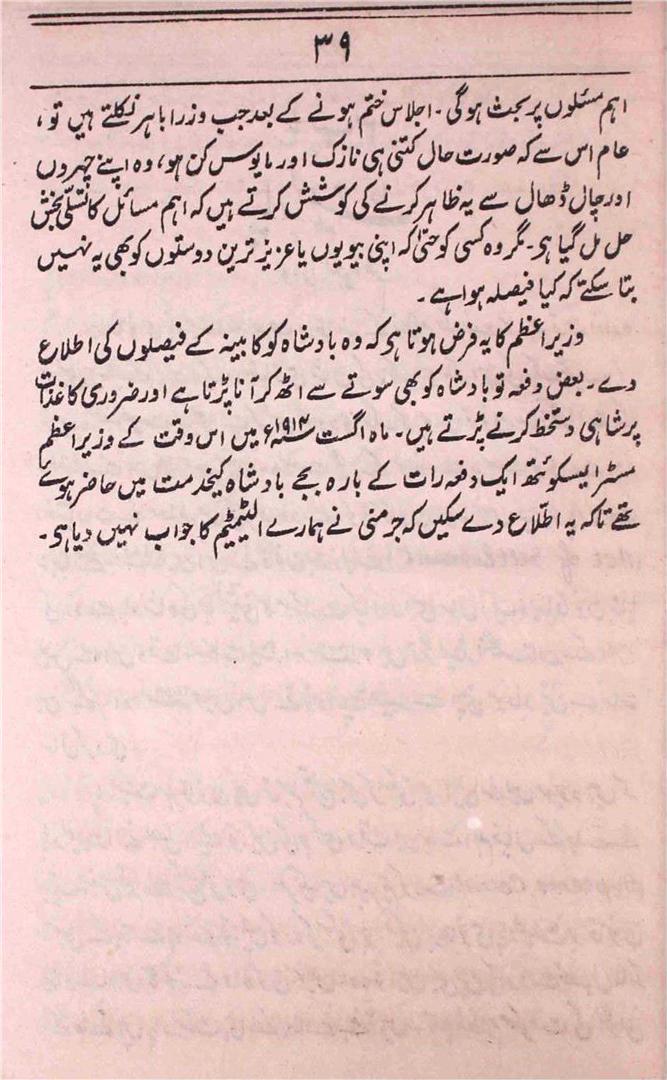 ۳۹
اہم مسئلوں پر بحث ہوگی۔ اجلاس ختم ہونے کے بعد جب وزرا باہر نکلتے ہیں تو،
عام اس سے کہ صورت حال کتنی ہی نازک اور مایوس کن ہو، وہ اپنے چہروں
اور چال ڈھال سے یہ ظاہر کرنے کی کوشش کرتے ہیں کہ اہم مسائل کا تسلی بخش
حل مل گیا ہی۔ مگر وہ کسی کو حتیٰ کہ اپنی بیویوں یا عزیز ترین دوستوں کو بھی یہ نہیں
بتا سکتے کہ کیا فیصلہ ہوا ہے۔
وزیر اعظم کا یہ فرض ہوتا ہی کہ وہ بادشاہ کو کابینہ کے فیصلوں کی اطلاع
دے۔ بعض دفعہ تو بادشاہ کو بھی سوتے سے اٹھ کر آنا پڑتا ہے اور ضروری کاغذات
پر شاہی دستخط کرنے پڑتے ہیں۔ ماہ اگست سنہ ۱۹۱۴ء میں اس وقت کے وزیر اعظم
مسٹر ایسکوئتھ ایک دفعہ رات کے بارہ بجے بادشاہ کیخدمت میں حاضر ہوئے
تھے تاکہ یہ اطلاع دے سکیں کہ جرمنی نے ہمارے الٹیمیٹم کا جواب نہیں دیا ہی۔